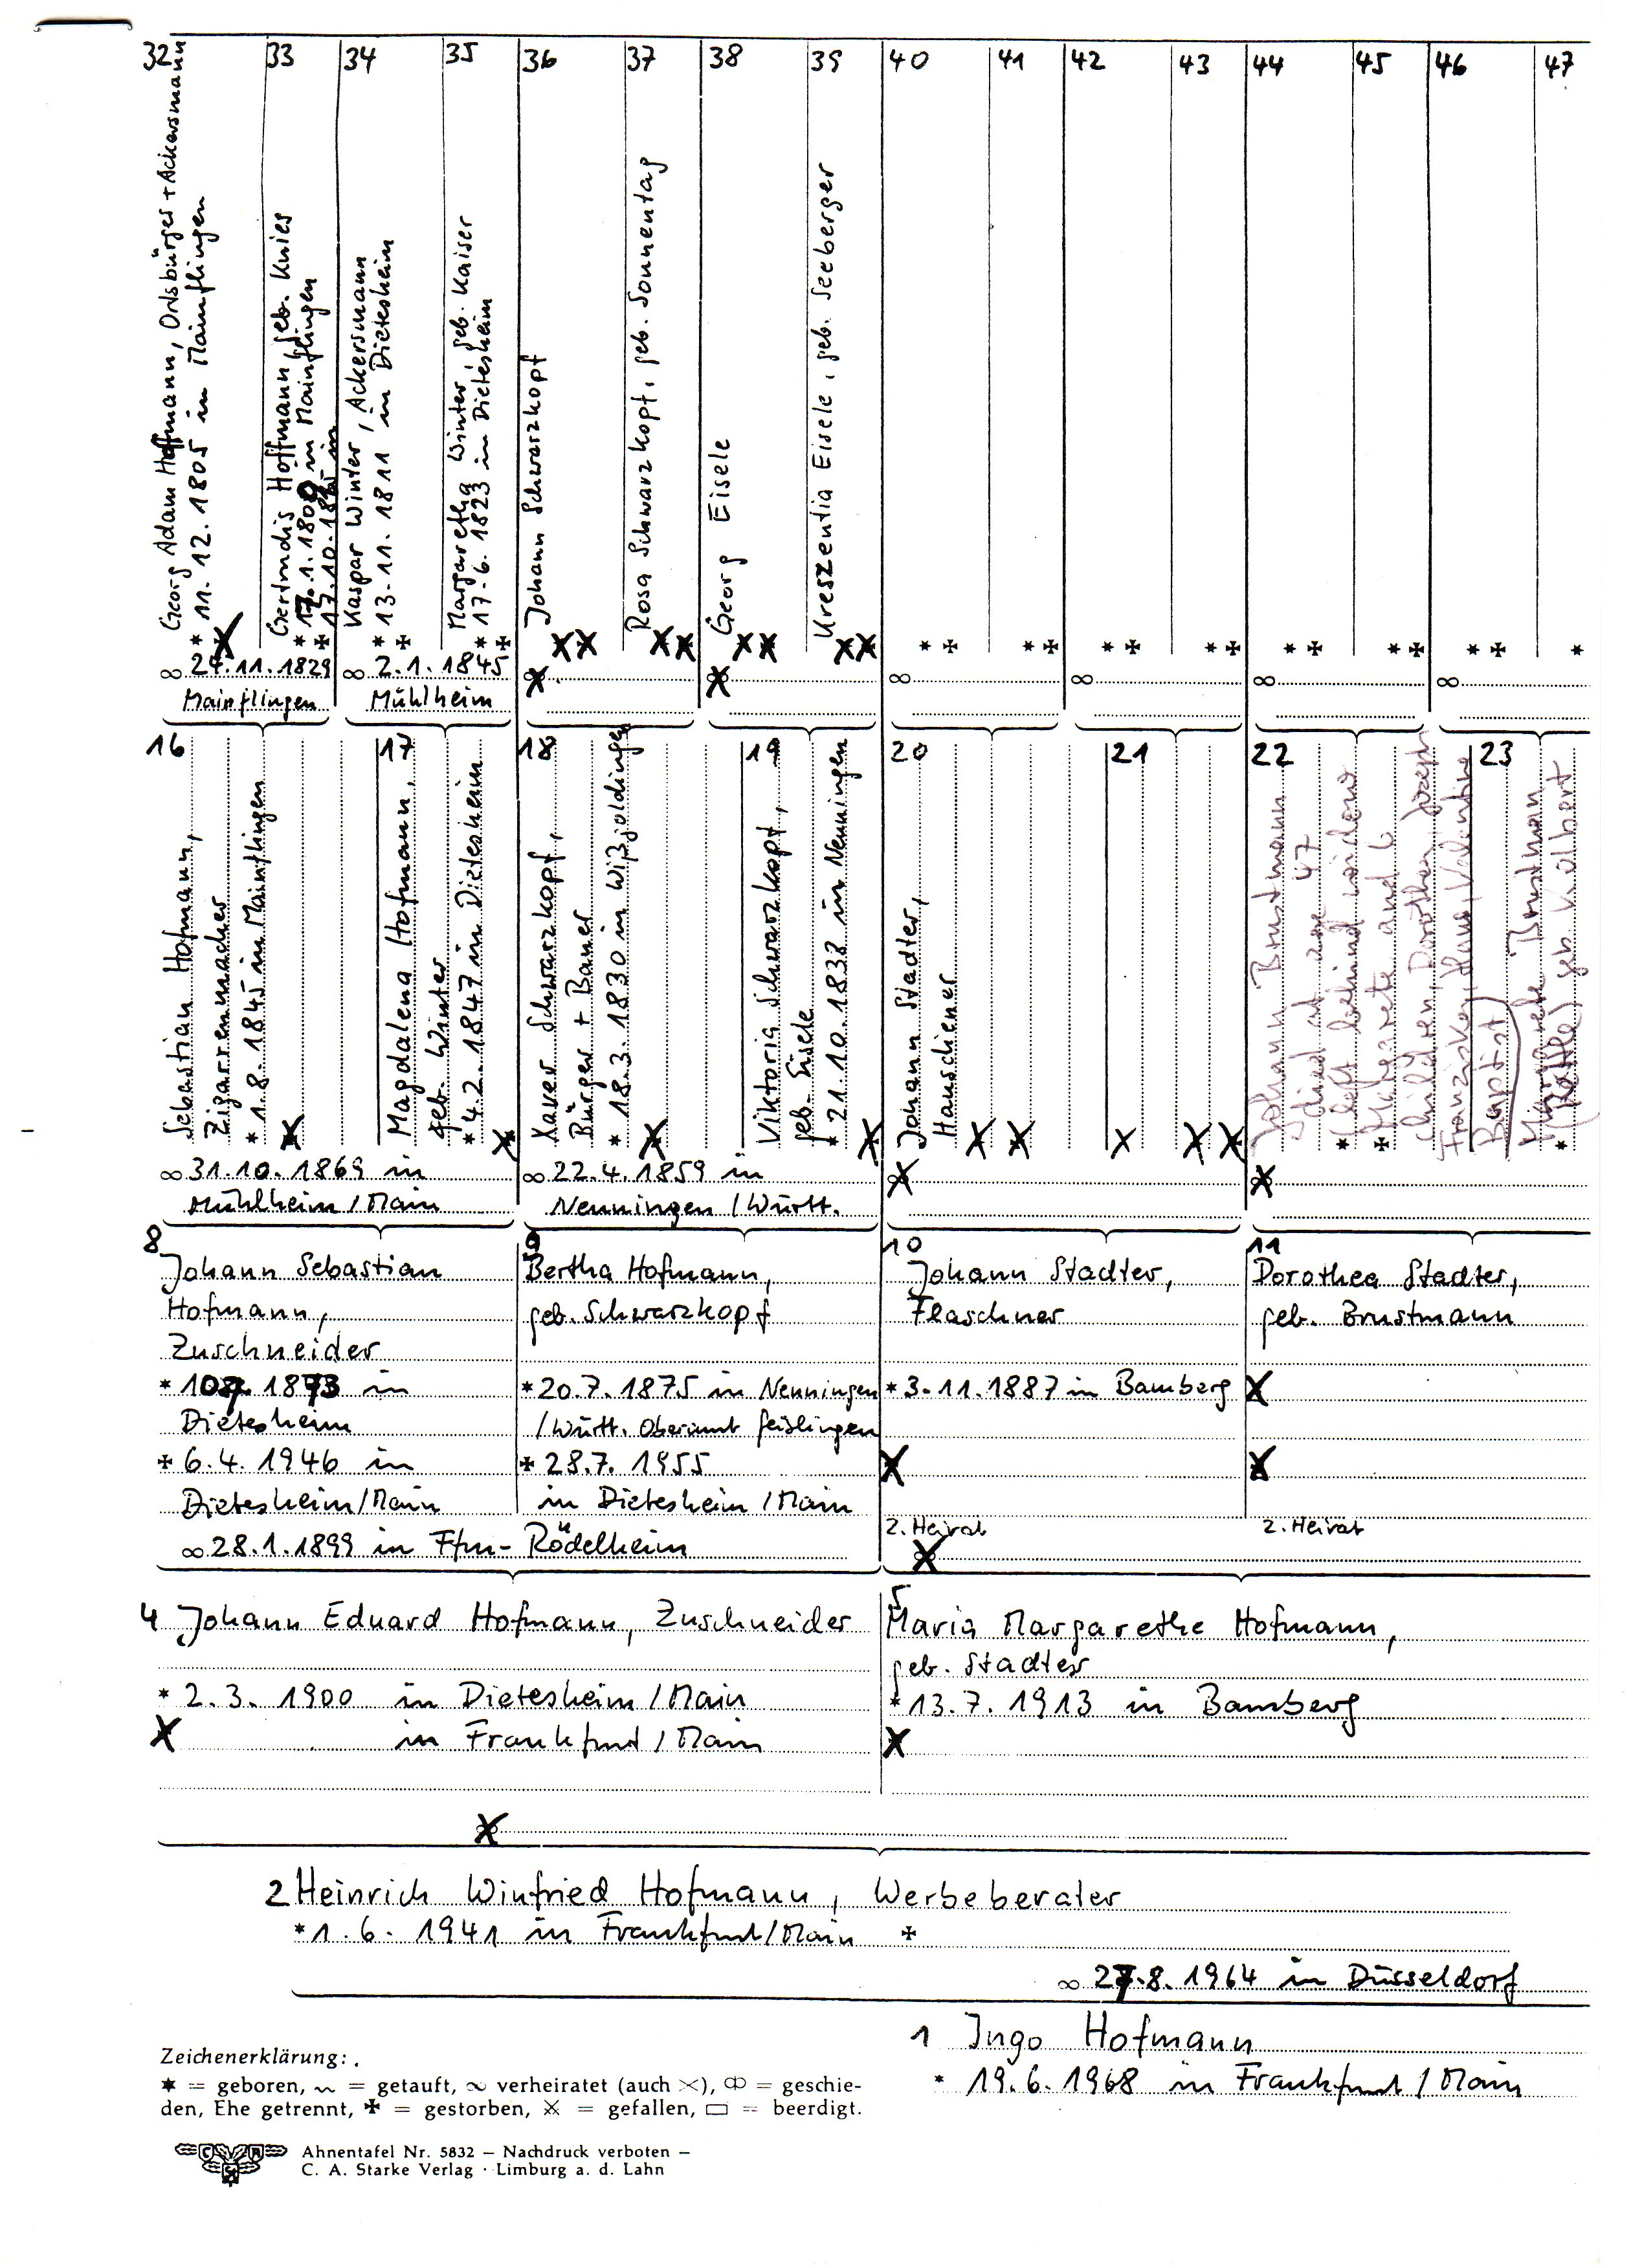 32
33
34
35
36
37
38
39
40
41
42
43
44
45
46
47
Georg Adam Hoffmann, Ortsbürger + Ackersmann
* 11. 12. 1805 in Mainflingen
Gertrudis Hoffmann, geb. Knies
* 17. 1. 1809 in Mainflingen
✠ 17. 10. in
Kaspar Winter, Ackersmann
* 13. 11. 1811 in Dietesheim
✠
Margaretha Winter, geb. Kaiser
* 17. 6. 1823 in Dietesheim
✠
Johann Schwarzkopf
Rosa Schwarzkopf, geb. Sonnentag
Georg Eisele
Kreszentia Eisele, geb. Seeberger
* ✠ * ✠ * ✠ * ✠ * ✠ * ✠ * ✠ *
∞ 24. 11. 1829
Mainflingen
∞ 2. 1. 1845
Mühlheim
∞ ∞ ∞ ∞
16
17
18
19
20
21
22
23
Sebastian Hofmann,
Zigarrenmacher
* 1. 8. 1845 in Mainflingen
Magdalena Hofmann,
geb. Winter
* 4. 2. 1847 in Dietesheim
Xaver Schwarzkopf,
Bürger + Bauer
* 18. 3. 1830 in Wißgoldingen
Viktoria Schwarzkopf,
geb. Eisele
* 21. 10. 1838 in Nenningen
Johann Stadter,
Hauschiener
Johann Brustmann
died at age 47
* (left behind widow
✠ Margarete and 6
children, Dorothea, Joseph
Franziska, Hans, Valentine
Baptist)
Margarete Brustmann
* geb. Kulbert
∞ 31. 10. 1869 in
Mühlheim / Main
∞ 22. 4. 1859 in
Nenningen / Württ.
8
Johann Sebastian
Hofmann,
Zuschneider
* 1873 in
Dietesheim
✠ 6. 4. 1946 in
Dietesheim/Main
9
Bertha Hofmann,
geb. Schwarzkopf
* 20. 7. 1875 in Nenningen
/Württ. Oberamt Geislingen
✠ 28. 7. 1955
in Dietesheim / Main
∞ 28. 1. 1899 in Ffm - Rödelheim
10
Johann Stadter,
Flaschner
* 3. 11. 1887 in Bamberg
2. Heirat
11
Dorothea Stadter,
geb. Brustmann
2. Heirat
4 Johann Eduard Hofmann, Zuschneider
* 2. 3. 1900 in Dietesheim / Main
in Frankfurt / Main
5
Maria Margarethe Hofmann,
geb. Stadter
* 13. 7. 1913 in Bamberg
2 Heinrich Winfried Hofmann, Werbeberater
* 1. 6. 1941 in Frankfurt/Main ✠
∞ 27. 8. 1964 in Düsseldorf
1 Ingo Hofmann
* 19. 6. 1968 in Frankfurt / Main
Zeichenerklärung:
✶ = geboren, ~ = getauft, ∞ verheiratet (auch ⚔), ⚮ = geschie-
den, Ehe getrennt, ✠ = gestorben, ⚔ = gefallen, ▭ = beerdigt.
Ahnentafel Nr. 5832 – Nachdruck verboten –
C. A. Starke Verlag · Limburg a. d. Lahn